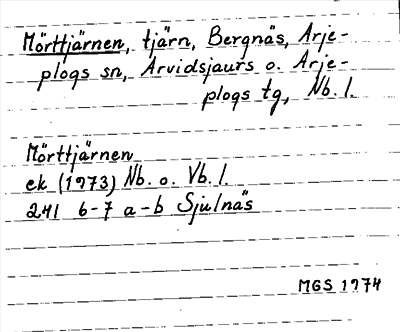 Mörttjärnen, tjärn, Bergnäs, Arje-
plogs sn, Arvidsjaurs o. Arje-
plogs tg, Nb. l.
Mörttjärnen
ek (1973) Nb. o. Vb. l.
241 6-7 a-b Sjulnäs
MGS 1974